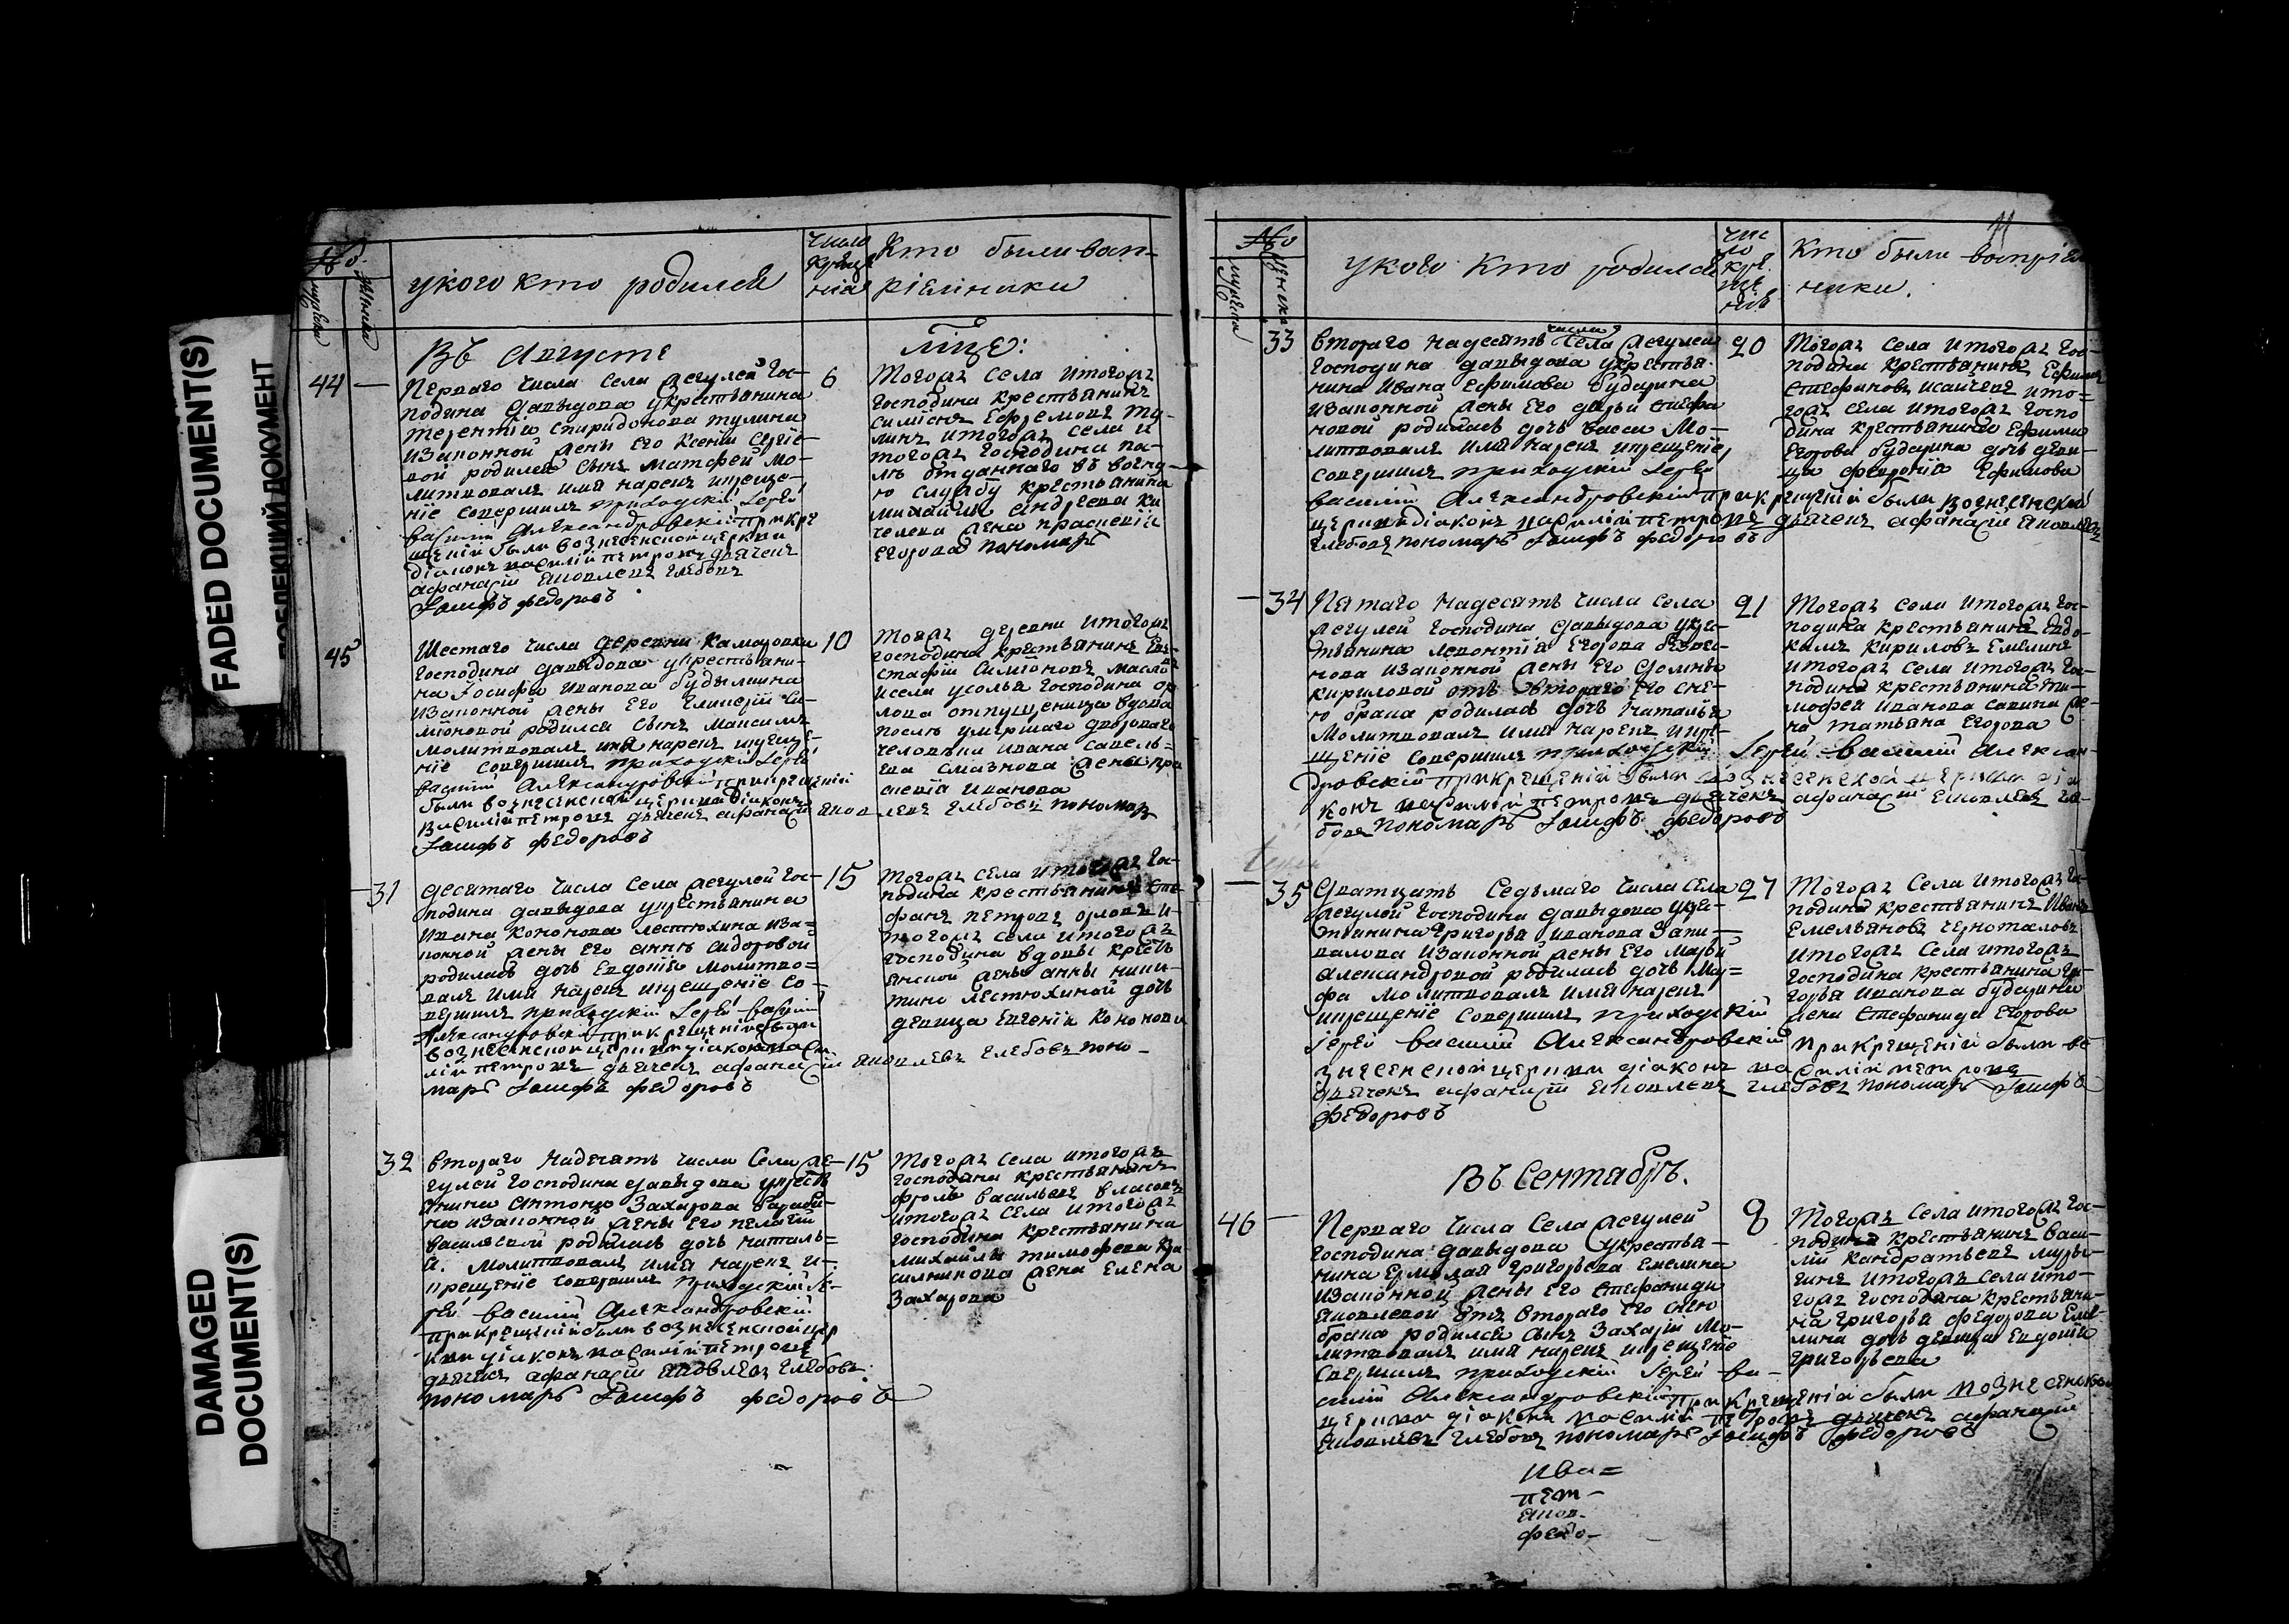 FADED DOCUMENT(S)
ДОКУМЕНТ
DAMAGED
DOCUMENT(S)
№
укого кто родился
Число
креще
нія
Кто были вап-
ріемники
Въ Августе
44
Перваго числа села Жегулей Гос-
подина Давыдова укрестьянина
терентія Спиридонова тулина
изаконной жены его Ксеніи Сергіе-
вой родился сынъ матфей мо-
литвовалъ имя нарекъ икреще-
ніе совершилъ приходскій Іерей
василій Александровскій прикре
щеніи были вознесенской церкви
діаконъ василій петровъ дьячекъ
афанасій яковлевъ глебовъ
Іосифъ федоровъ
6
Тогожъ села итогожъ
господина крестьянинъ
симіонъ Ефремовъ ту-
линъ итогожъ села и
тогожъ господина
отданнаго въ воен-
ю службу крестьянина
михайлы андреева
жена праскевія
Егорова пономарь
45
Шестаго числа деревни
господина давыдова укрестьяни-
на Іосифа иванова
изаконной жены его
родился сынъ максимъ
молитвовалъ имя нарекъ икреще-
ніе совершилъ приходскій Іерей
василій Александровскій прикрещеніи
были вознесенской церкви діаконъ
василій петровъ дьячекъ афанасій яков левъ глебовъ пономарь
Іосифъ федоровъ
10
тояжъ деревни итогожъ
господина крестьянинъ Ев-
стафій симіоновъ
исела усолья господина ор
лова отпущеница вдова
послѣ умершаго двороваго
человѣка ивана савель-
ева жена пра
скевія иванова
31
десятаго числа села жегулей гос-
подина давыдова укрестьянина
ивана кононова лестюхина иза-
конной жены его анны сидоровой
родилась дочь Евдокія молитво-
валъ имя нарекъ икрещеніе со-
вершилъ приходскій Іерей василій
Александровскій прикрещеніи были
вознесенской церкви діаконъ васи
лій петровъ дьячекъ афанасій яковлевъ глебовъ поно-
марь Іосифъ федоровъ
15
Тогожъ села итогожъ гос-
подина крестьянинъ сте-
фанъ петровъ орловъ и-
тогожъ села итогожъ
господина вдовы кресть
янской жены анны ники-
тино лестюхиной дочь
девица Евгенія Кононова
32
втораго надесять числа села же-
гулей господина давыдова укресть
янина антона Захарова
на изаконной жены его пелагеи
васильевой родилась дочь наталь-
я. молитвовалъ имя нарекъ и-
крещеніе совершилъ приходскій Іе-
рей василій Александровскій
прикрещеніи были вознесенской цер
кви діаконъ василій петровъ
дьячекъ афанасій яковлевъ глебовъ
пономарь Іосифъ федоровъ
15
Тогожъ села итогожъ
господина крестьянинъ
фролъ васильевъ власовъ
итогожъ села итогожъ
господина крестьянина
михайлы тимофеева кра
сильникова жена Елена
Захарова
11
№
укого кто родился
чис
ло
кре
ще
нія
Кто были воспріем
ники.
33
втораго надесять числа села жегулей
господина давыдова укрестья-
нина Ивана Ефимова Бударина
изаконной жены его дарьи стефа
новой родилась дочь васса мо-
литвовалъ имя нарекъ икрещеніе
совершилъ приходскій Іерей
василій Александровскій прикрещеніи были вознесенской
церкви діаконъ василій петровъ дьячекъ афанасій яковлевъ
глебовъ пономарь Іосифъ федоровъ
20
Тогожъ села итогожъ гос-
подина крестьянинъ Ефимъ
стефановъ исайчевъ ито-
гожъ села итогожъ госпо
дина крестьянина Ефима
Егорова Бударина дочь деви-
ца февронія Ефимова
34
Пятаго надесять числа села
жегулей господина давыдова укре-
тьянина леонтія Егорова
нова изаконной жены его домны
кириловой отъ втораго его сне-
ю брака родилась дочь наталья
молитвовалъ имя нарекъ икре-
щеніе совершилъ приходскій Іерей василій алексан-
дровскій прикрещеніи были вознесенской церкви діа
конъ василій петровъ дьячекъ афанасій яковлевъ гле-
бовъ пономарь Іосифъ федоровъ
21
Тогожъ села итогожъ гос-
подина крестьянинъ Евдо-
кимъ кириловъ Емелинъ
итогожъ села итогожъ гос-
подина крестьянина ти-
мофея иванова савина же-
на татьяна Егорова
35
дватцать седьмаго числа села
жегулей господина давыдова укре-
тьянина григорья иванова Запи-
валова изаконной жены его марьи
александровой родилась дочь мар-
фа молитвовалъ имя нарекъ
икрещеніе совершилъ приходскій
Іерей василій Александровскій прикрещеніи были во
знесенской церкви діаконъ василій петровъ
дьячекъ афанасій яковлевъ глебовъ пономарь Іосифъ
федоровъ
27
Тогожъ села итогожъ го-
подина крестьянинъ Иванъ
Емельяновъ черноталовъ
итогожъ села итогожъ
господина крестьянина гри
горья иванова бударина
жена стефанида Егорова
Въ Сентябрѣ.
46
Перваго числа села жегулей
господина давыдова укрестья-
нина Ермолая григорьева Емелина
изаконной жены его стефаниды
яковлевой отъ втораго его снею
брака родился сынъ Захарій мо-
литвовалъ имя нарекъ икрещеніе
совершилъ приходскій Іерей ва-
силій Александровскій прикрещеніи были вознесенской
церкви діаконъ василій петровъ дьячекъ афанасій
яковлевъ глебовъ пономарь Іосифъ федоровъ
8
Тогожъ села итогожъ гос-
подина крестьянинъ васи-
лій кандратьевъ
итогожъ села ито-
гожъ господина крестьяни-
на григорья федорова Еме-
лина дочь девица Евдокія
григорьева
ива=
пет-
яков-
федо-